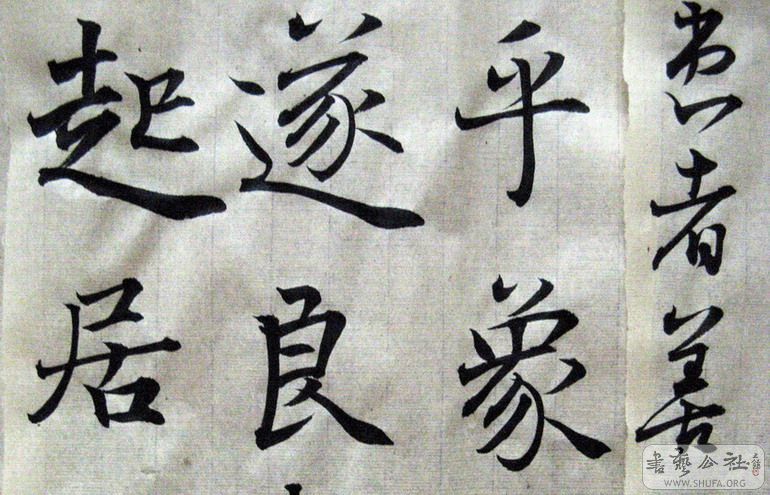 者善
乎象
遂良
起居
書藝公社
WWW.SHUFA.ORG